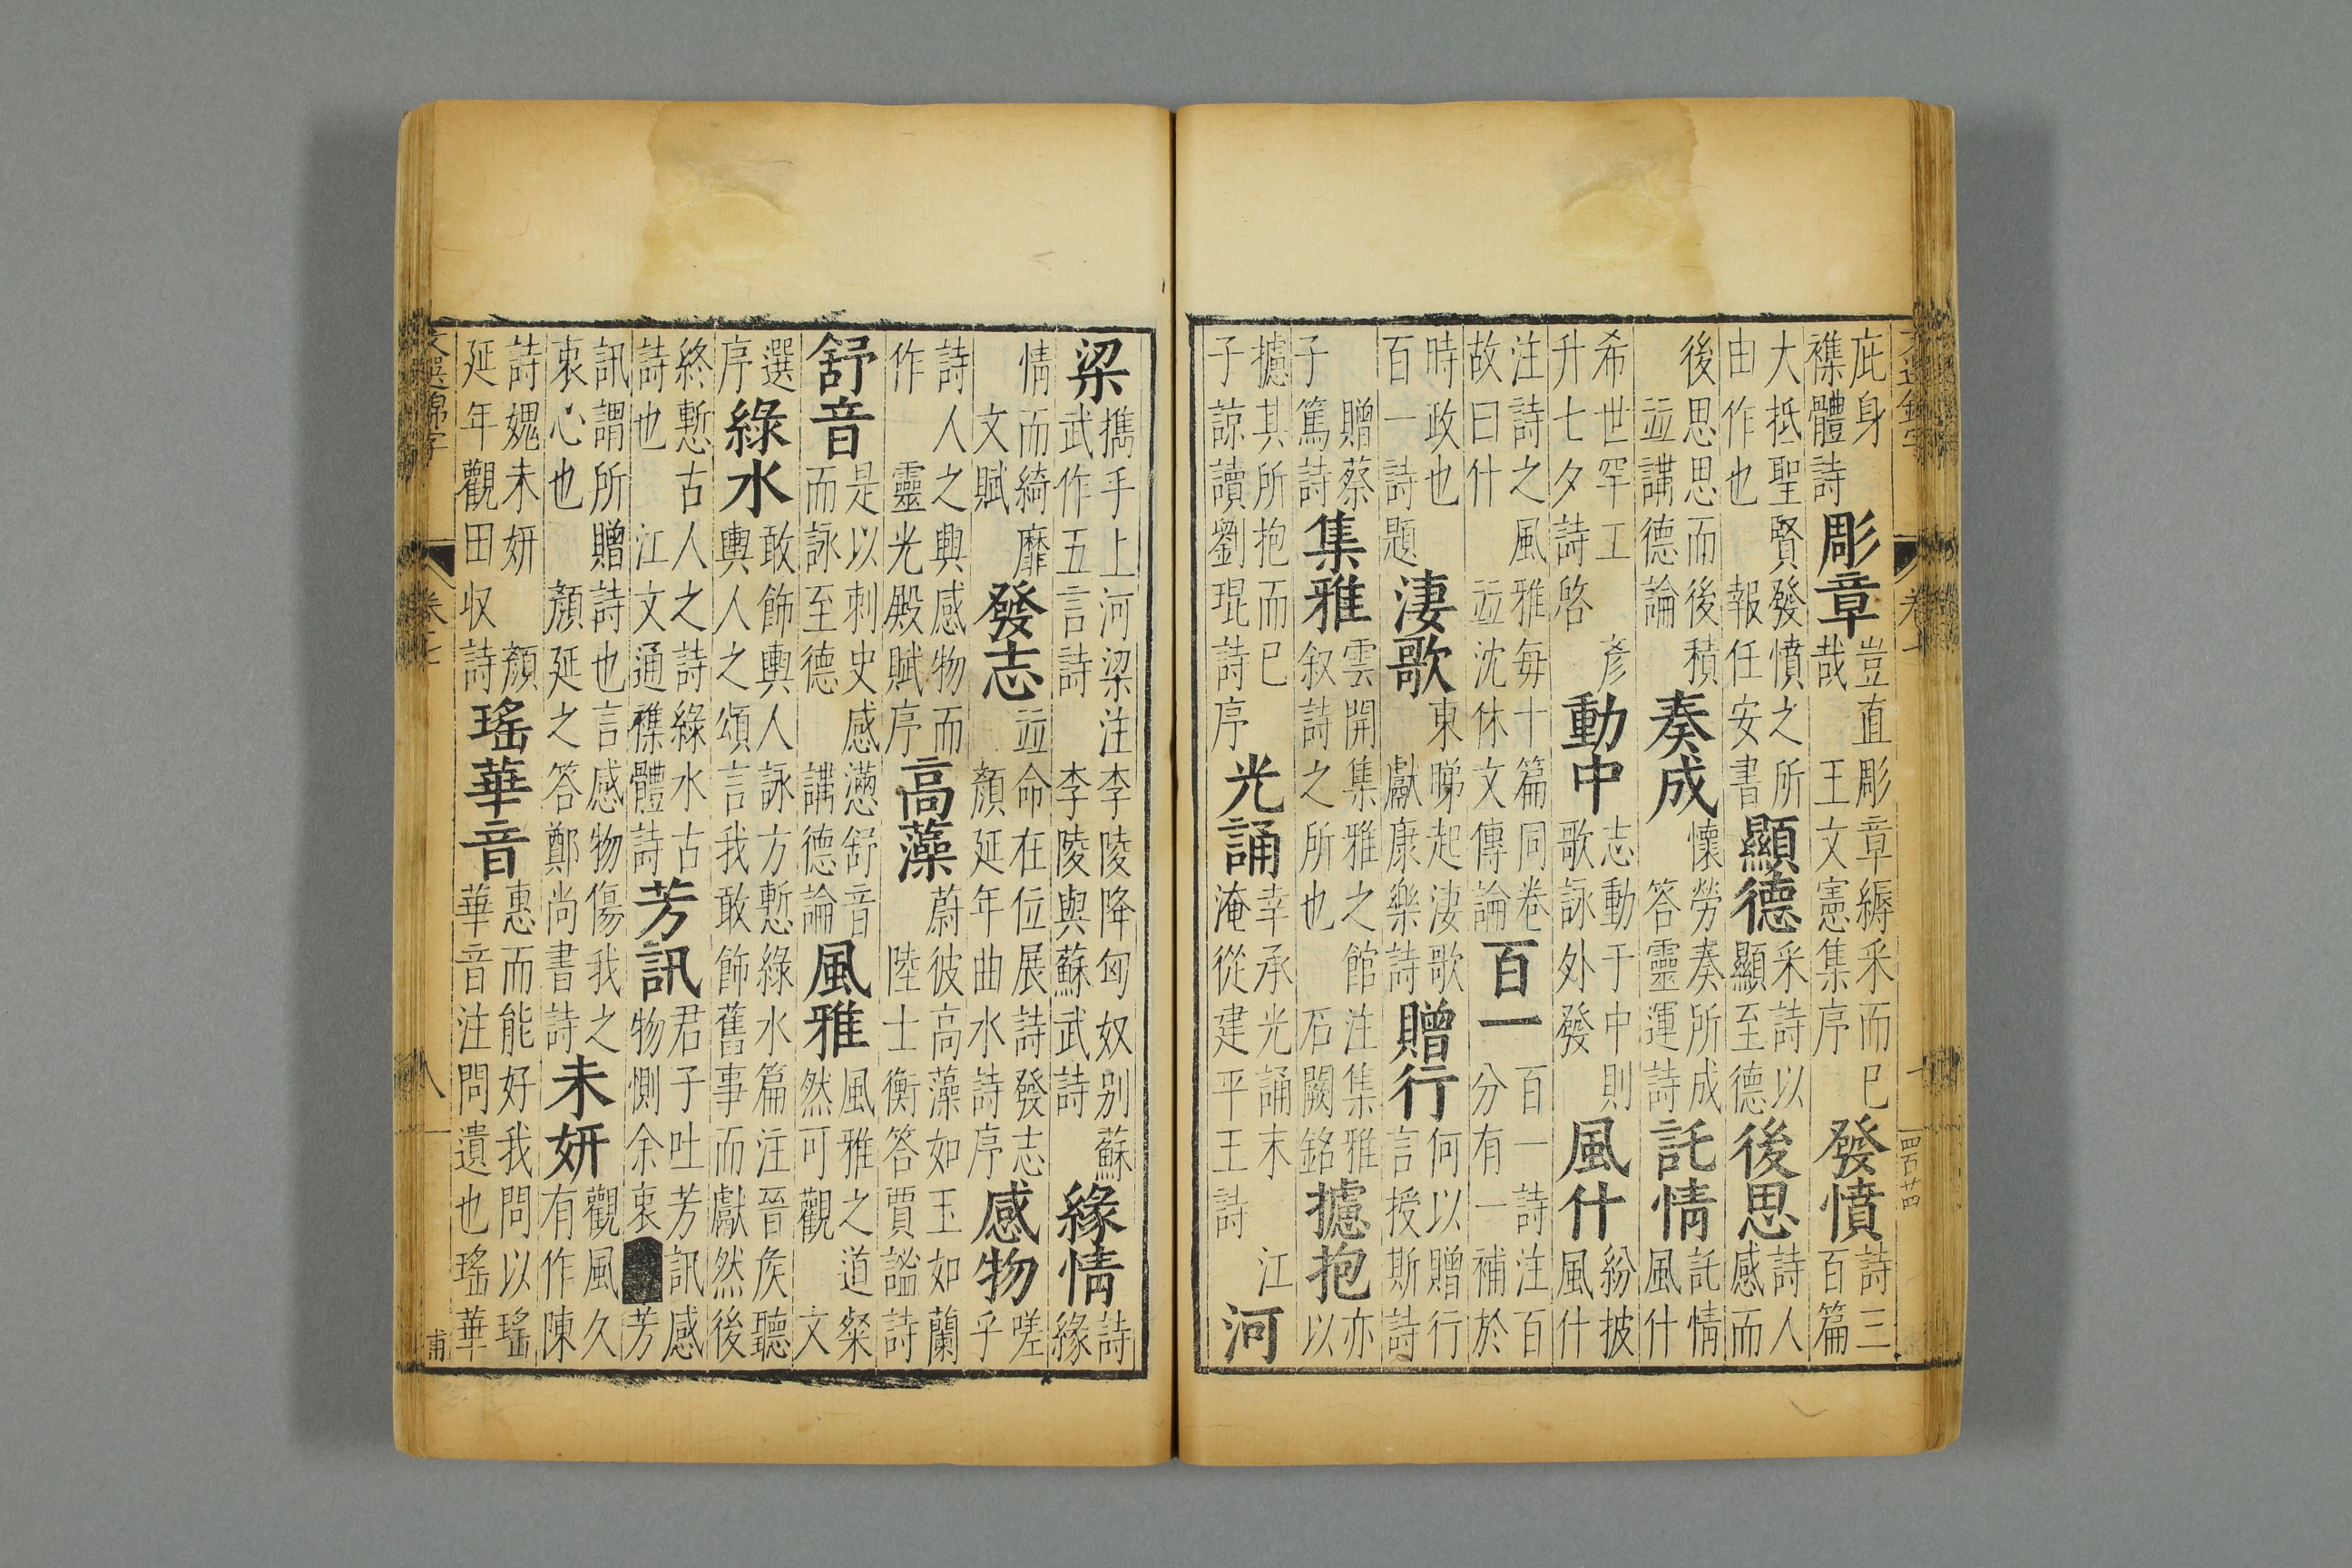 庇身襍體詩彫章豈直彫章縟采而已哉王文憲集序發憤詩三百篇
大抵聖賢發憤之所由作也報任安書顯德采詩以顯至德後思詩人感而
後思思而後積竝講德論奏成懷勞奏所成答靈運詩託情託情風什
希世罕工彥升七夕詩啓動中志動于中則歌詠外發風什紛披風什
注詩之風雅每十篇同卷故曰什竝沈休文傳論百一百一詩注百分有一補於
時政也百一詩題淒歌東睇起淒歌獻康樂詩贈行何以贈行言授斯詩
贈蔡子篤詩集雅雲開集雅之館注集雅叙詩之所也石闕銘攄抱亦以
攄其所抱而已子諒讀劉琨詩序光誦幸承光誦末江淹從建平王詩河
四百廿四
梁攜手上河梁注李陵降匈奴别蘇武作五言詩李陵與蘇武詩緣情詩緣
情而綺靡文賦發志竝命在位展詩發志顏延年曲水詩序感物嗟乎
詩人之興感物而作靈光殿賦序高藻蔚彼高藻如玉如蘭陸士衡答賈謐詩
舒音是以刺史感懣舒音而詠至德講德論風雅風雅之道粲然可觀文
選序綠水敢飾輿人詠方慙綠水篇注晉侯聽輿人之頌言我敢飾舊事而獻然後
終慙古人之詩綠水古詩也江文通襍體詩芳訊君子吐芳訊感物惻余衷芳
訊謂所贈詩也言感物傷我之衷心也顏延之答鄭尚書詩未妍觀風久有作陳
詩媿未妍顏延年觀田収詩瑤華音惠而能好我問以瑤華音注問遺也瑤華
文選錦字 八 甫